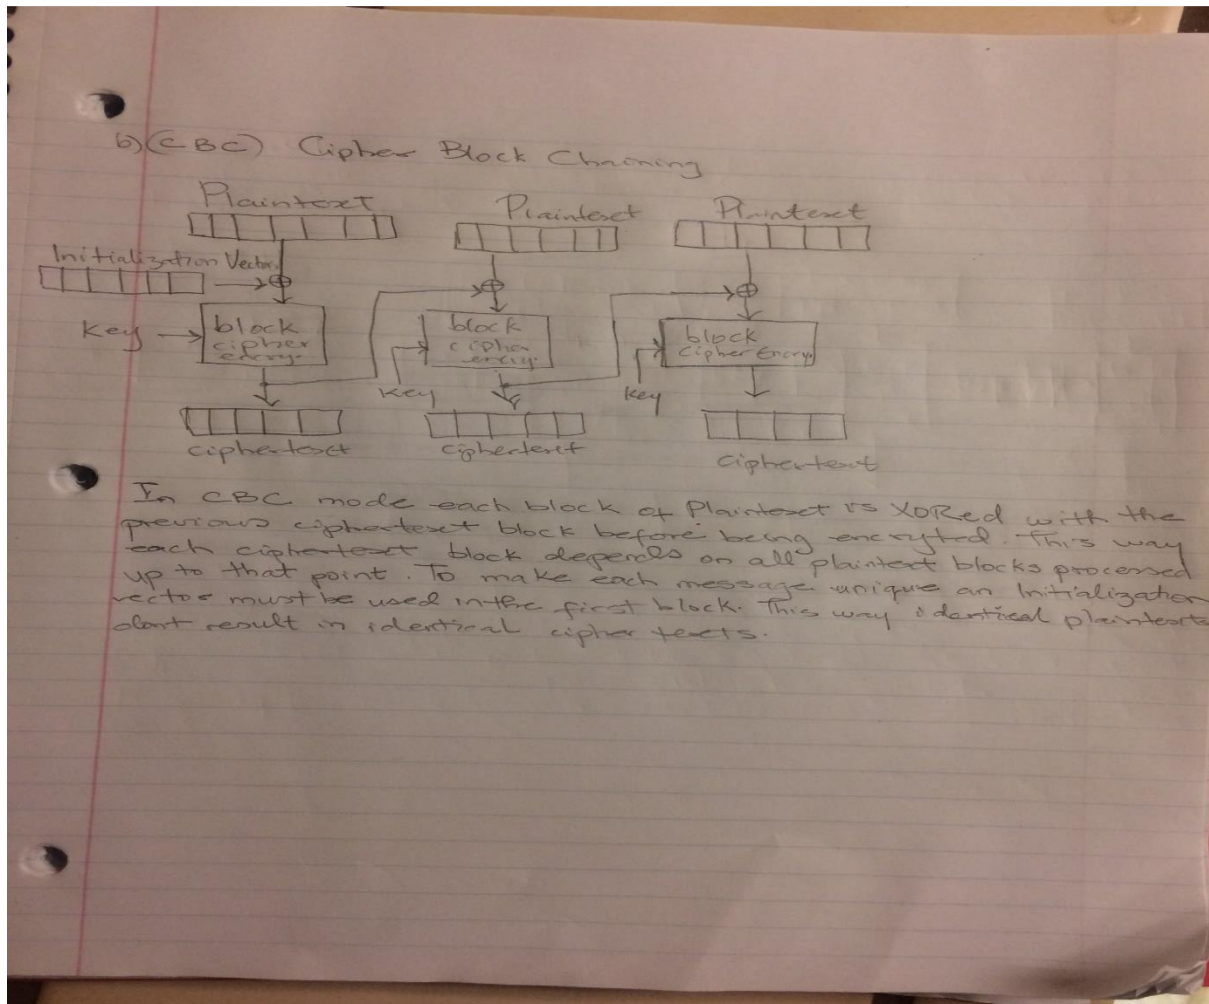 b) (CBC) Cipher Block Chaining
Plaintext Plaintext Plaintext
Initialization Vector.
Key block cipher encry. block cipher encry. block Cipher Encry.
Key Key
ciphertext ciphertext ciphertext
In CBC mode each block of Plaintext is XORed with the
previous ciphertext block before being encrypted. This way
each ciphertext block depends on all plaintext blocks processed
up to that point. To make each message unique an Initialization
vector must be used in the first block. This way identical plaintexts
dont result in identical cipher texts.